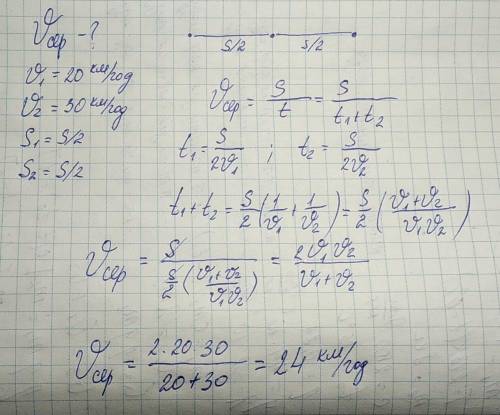 Vсер - ?
S/2 S/2
V₁ = 20 км/год
V₂ = 30 км/год
S₁ = S/2
S₂ = S/2
Vсер = S/t = S/(t₁+t₂)
t₁ = S/2V₁ ; t₂ = S/2V₂
t₁+t₂ = S/2 (1/V₁ + 1/V₂) = S/2 (V₁+V₂/V₁V₂)
Vсер = S/(S/2 (V₁+V₂/V₁V₂)) = 2V₁V₂/(V₁+V₂)
Vсер = 2·20·30/(20+30) = 24 км/год